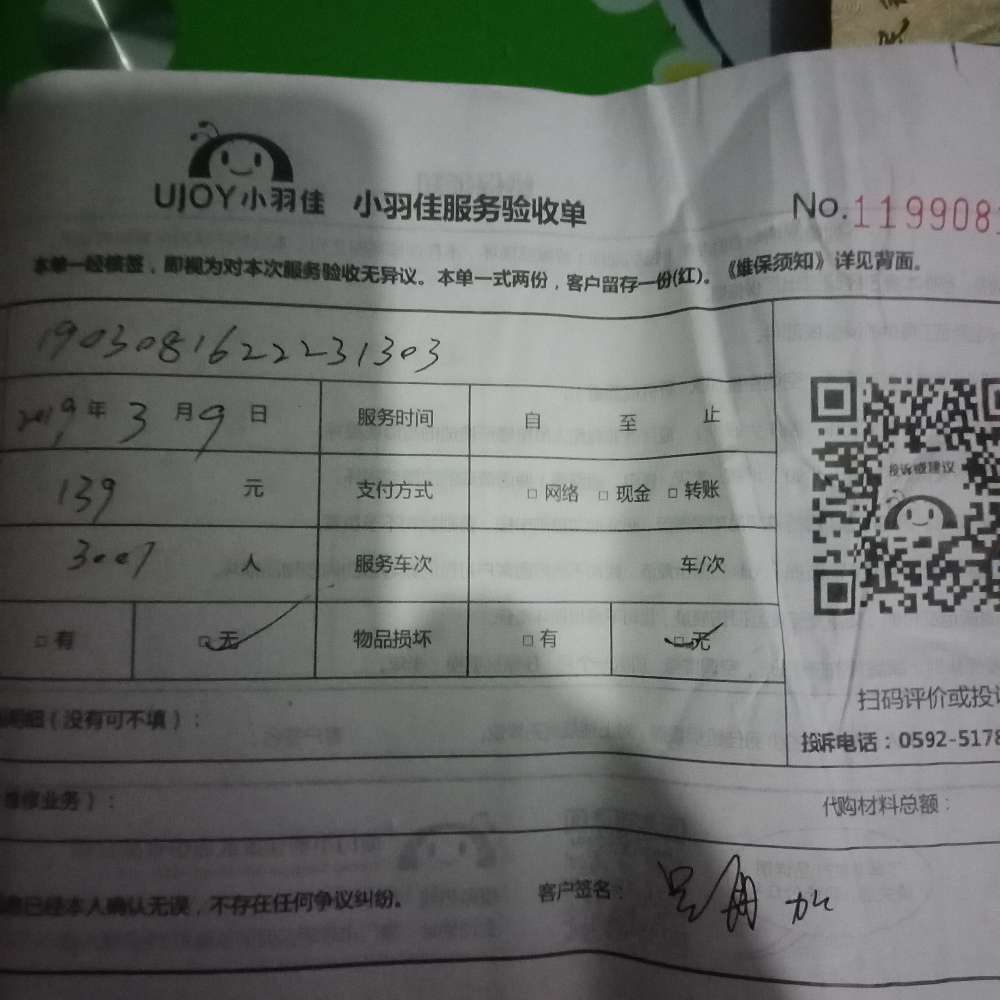 UJOY小羽佳 小羽佳服务验收单 No.119908
本单一经核签，即视为对本次服务验收无异议。本单一式两份，客户留存一份(红)。《维保须知》详见背面。
19030816222231303
2019年 3 月 9 日 服务时间 自 至 止
139 元 支付方式 □ 网络 □ 现金 □ 转账
3007 人 服务车次 车/次
□ 有 □ 无 物品损坏 □ 有 □ 无
投诉或建议
扫码评价或投诉
投诉电话：0592-5178
明细（没有可不填）：
维修业务）： 代购材料总额：
息已经本人确认无误，不存在任何争议纠纷。 客户签名：